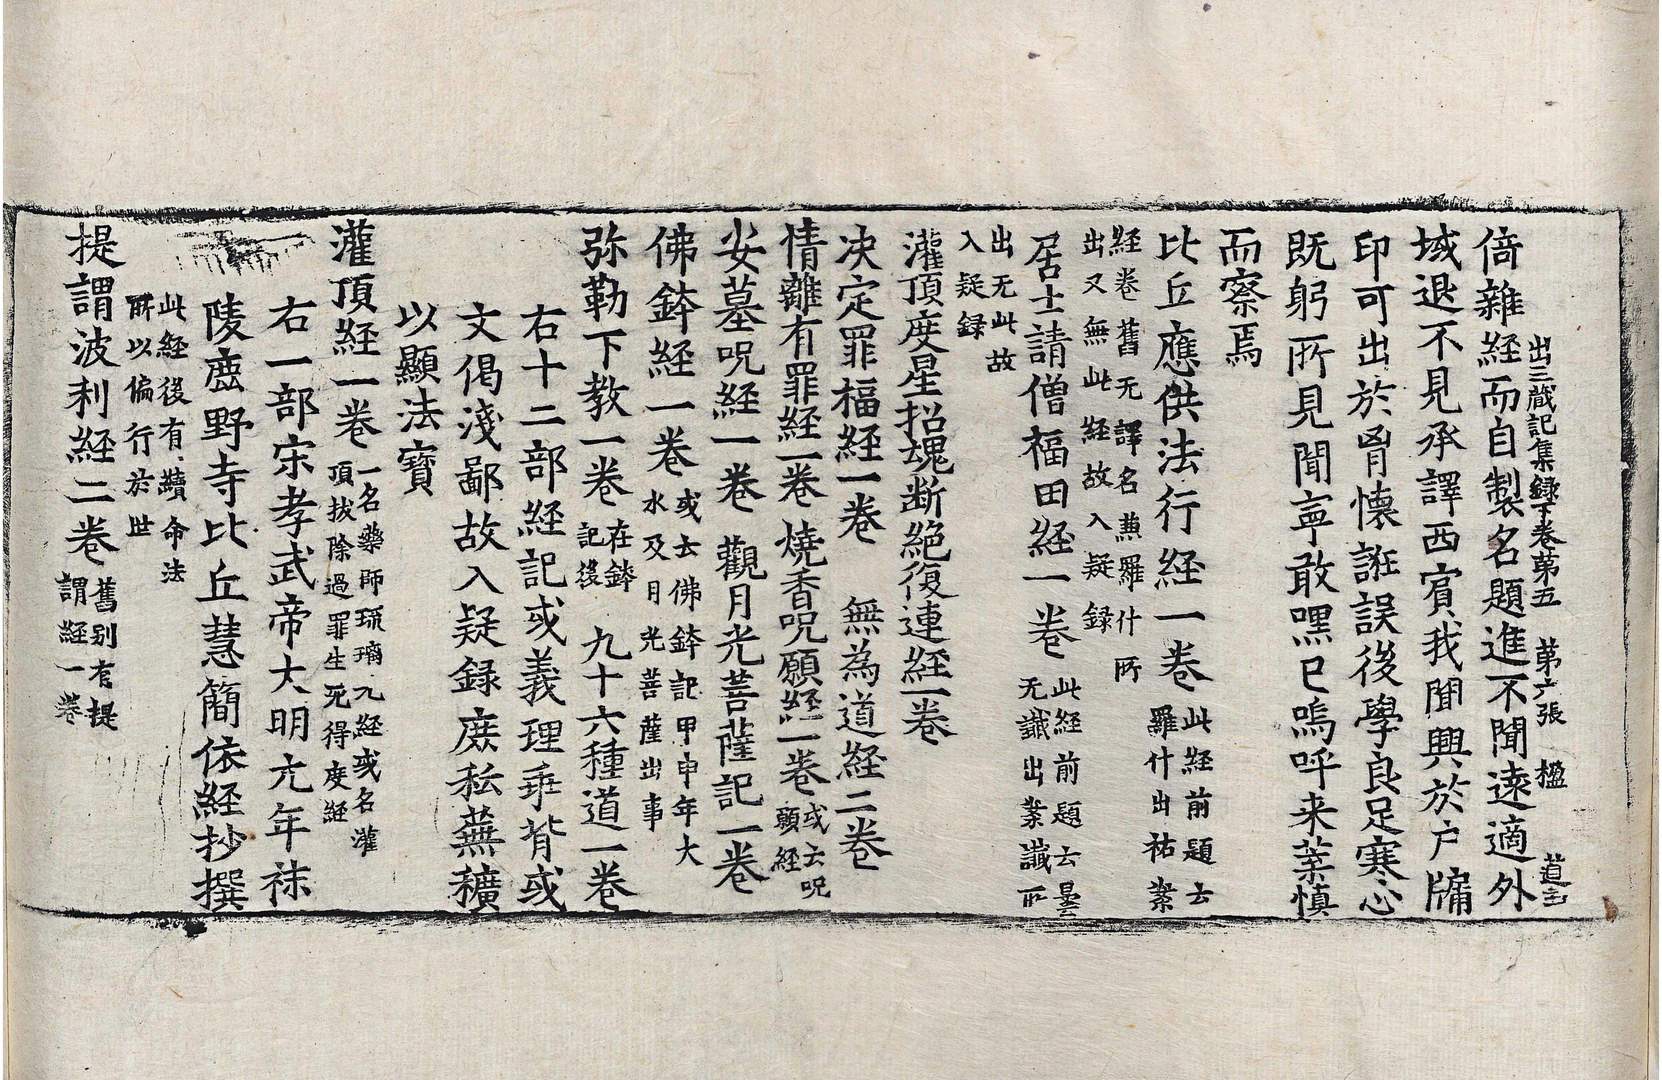 出三蔵記集録下卷第五　第六張　楹　道主
倚雜経而自製名題進不聞遠適外
域退不見承譯西賓我聞興於户牖
印可出於胷懷誑誤後學良足寒心
既躬所見聞寧敢嘿已嗚呼来葉慎
而察焉
比丘應供法行経一卷 此経前題云
羅什出祐案
経卷舊无譯名兼羅什所
出又無此経故入疑録
居士請僧福田経一卷 此経前題云曇
无讖出案讖所
出无此故
入疑録
灌頂度星招魂断絶復連経一卷
决定罪福経一卷　無為道経二卷
情離有罪経一卷　燒香呪願経一卷 或云呪
願経
安墓呪経一卷　觀月光菩薩記一卷
佛鉢経一卷 或云佛鉢記甲申年大
水及月光菩薩出事
弥勒下教一卷 在鉢
記後　九十六種道一卷
右十二部経記或義理乖背或
文偈淺鄙故入疑録庶耘蕪穬
以顯法寶
灌頂経一卷 一名藥師琉璃光経或名灌
頂拔除過罪生死得度経
右一部宋孝武帝大明元年秣
陵鹿野寺比丘慧簡依経抄撰
此経後有續命法
所以偏行於世
提謂波利経二卷 舊别有提
謂経一卷